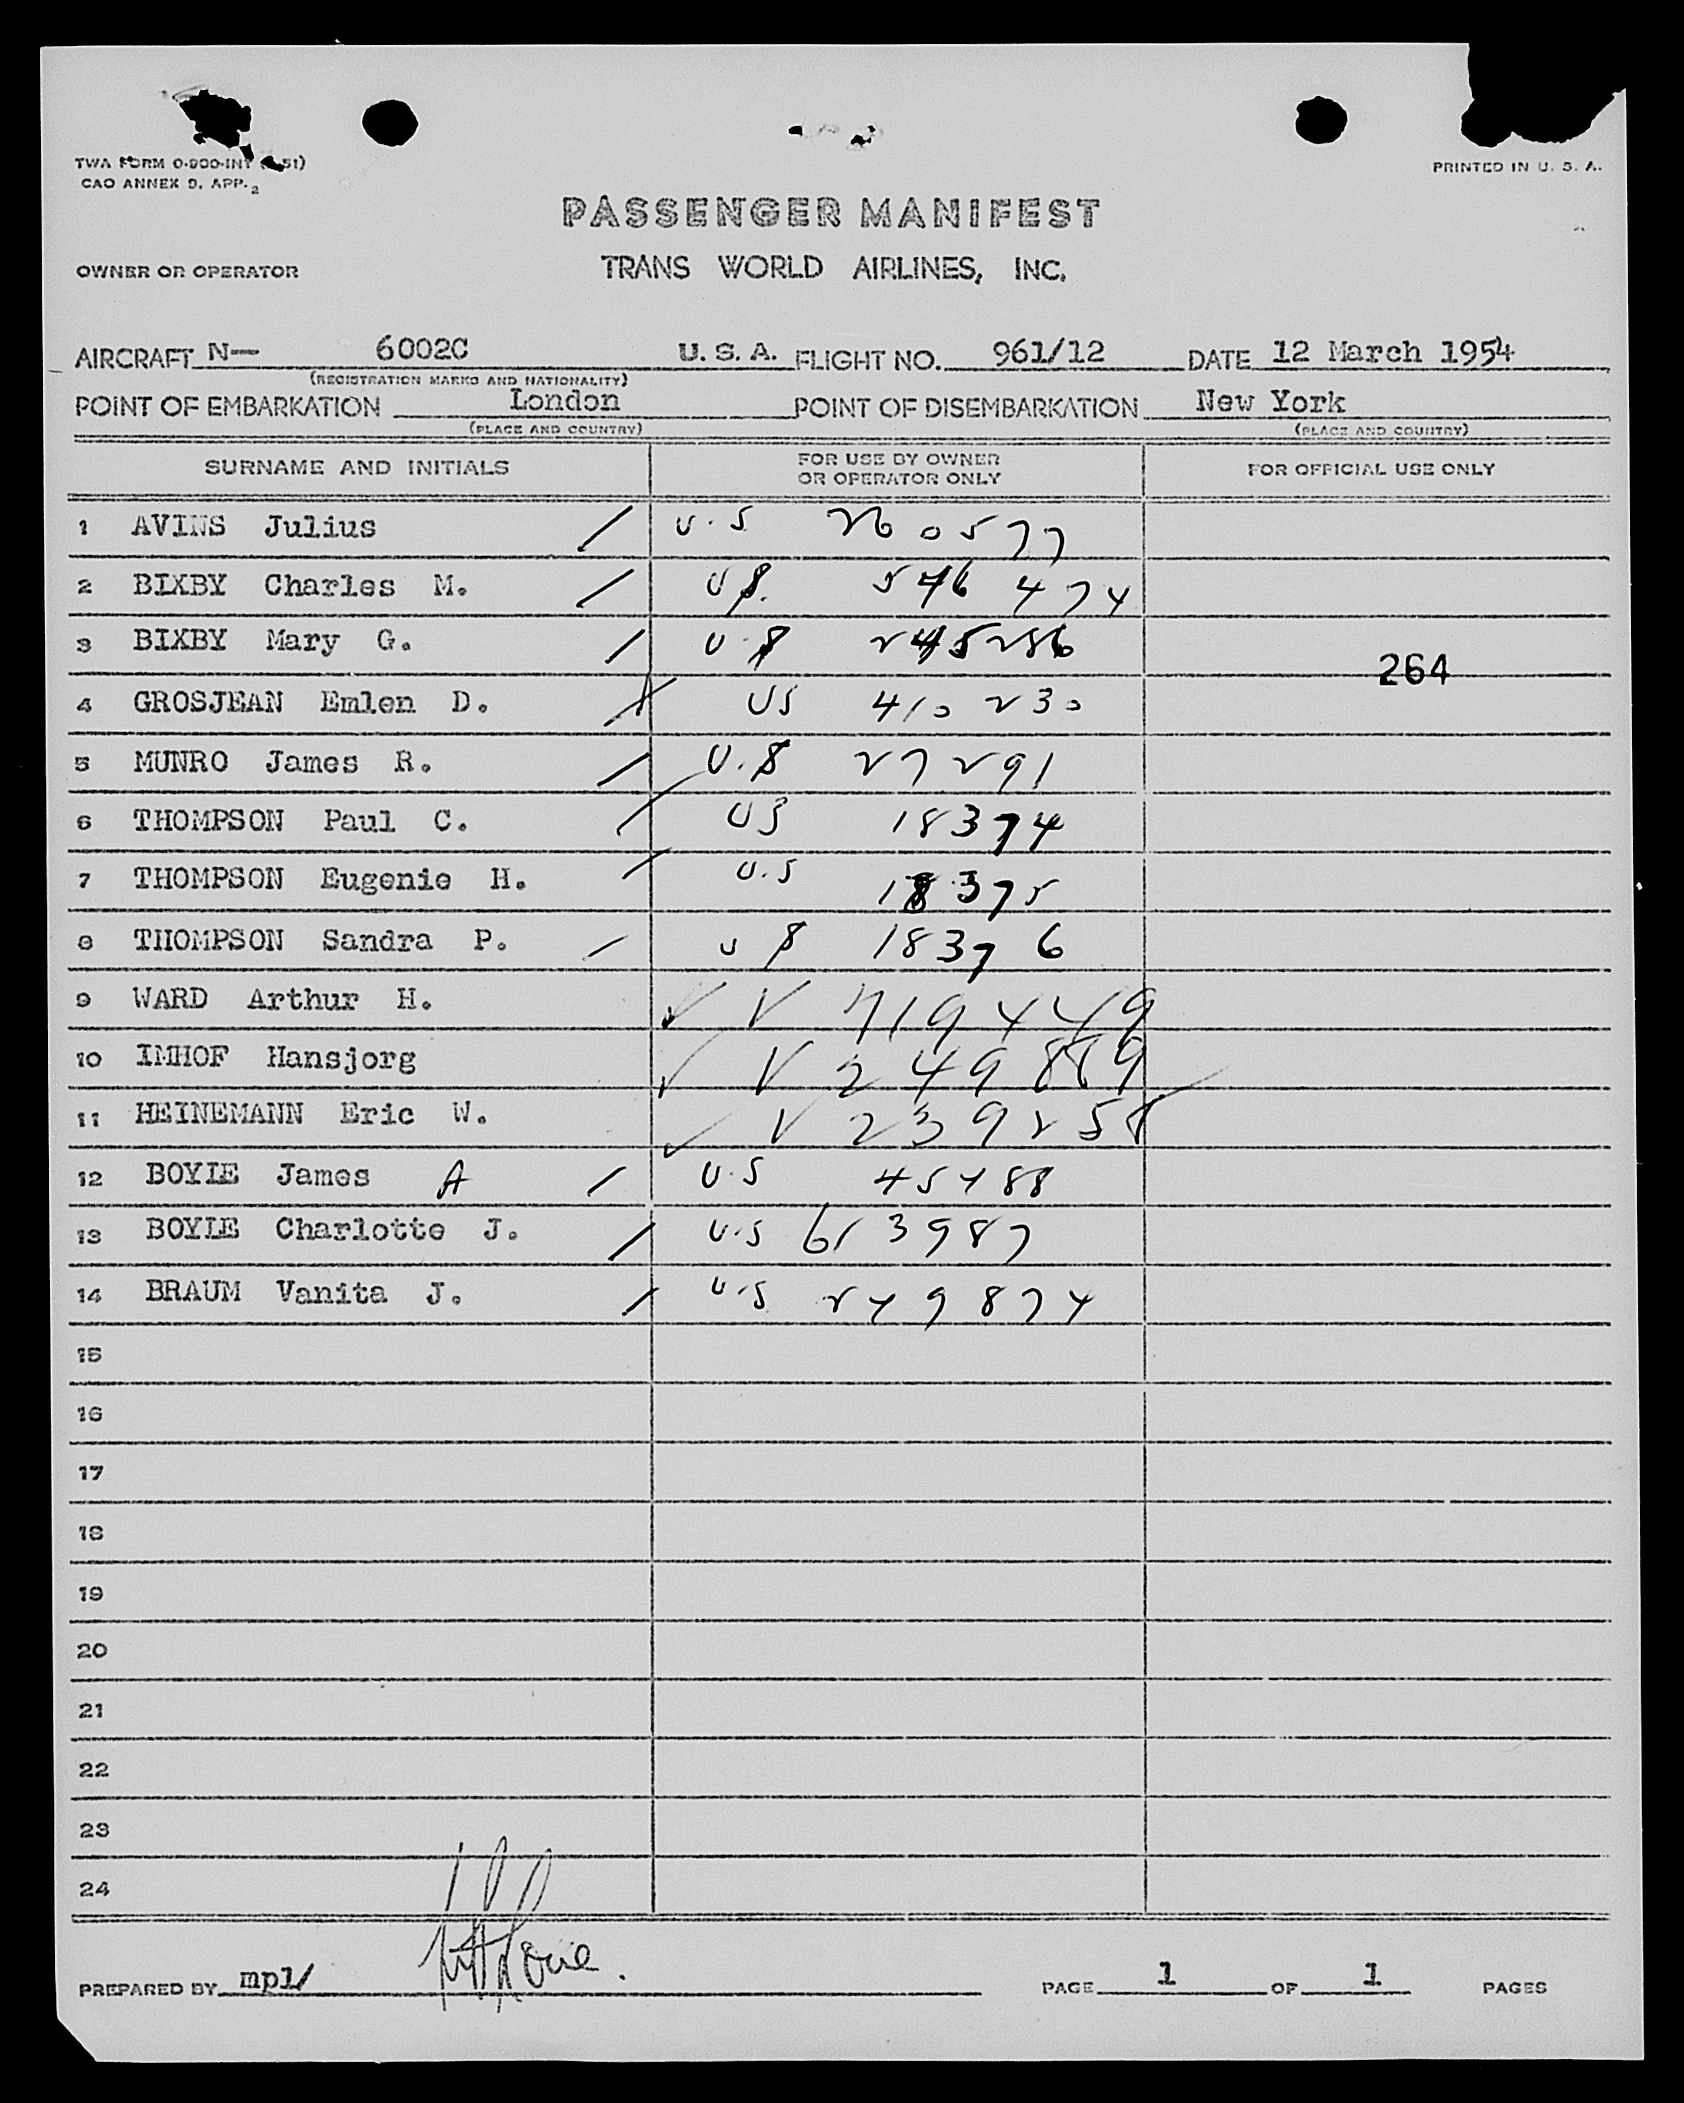 TWA FORM 0-900-INT 51)
CAO ANNEX 9, APP. 2
PRINTED IN U. S. A.
PASSENGER MANIFEST
OWNER OR OPERATOR
TRANS WORLD AIRLINES, INC.
AIRCRAFT N— 6002C U. S. A. FLIGHT NO. 961/12 DATE 12 March 1954
(REGISTRATION MARKS AND NATIONALITY)
POINT OF EMBARKATION London POINT OF DISEMBARKATION New York
(PLACE AND COUNTRY) (PLACE AND COUNTRY)
SURNAME AND INITIALS FOR USE BY OWNER OR OPERATOR ONLY FOR OFFICIAL USE ONLY
1 AVINS Julius / U.S 260577
2 BIXBY Charles M. / US. 546 474
3 BIXBY Mary G. / U.S 245286
264
4 GROSJEAN Emlen D. US 410 230
5 MUNRO James R. / U.S 27291
6 THOMPSON Paul C. / US 18374
7 THOMPSON Eugenie H. / U.S 18375
8 THOMPSON Sandra P. / US 18376
9 WARD Arthur H. ✓ V 719449
10 IMHOF Hansjorg ✓ V 249889
11 HEINEMANN Eric W. ✓ V 239258
12 BOYLE James A / U.S 45488
13 BOYLE Charlotte J. / U.S 613987
14 BRAUM Vanita J. / U.S 249874
15
16
17
18
19
20
21
22
23
24
PREPARED BY mpl/ PAGE 1 OF 1 PAGES